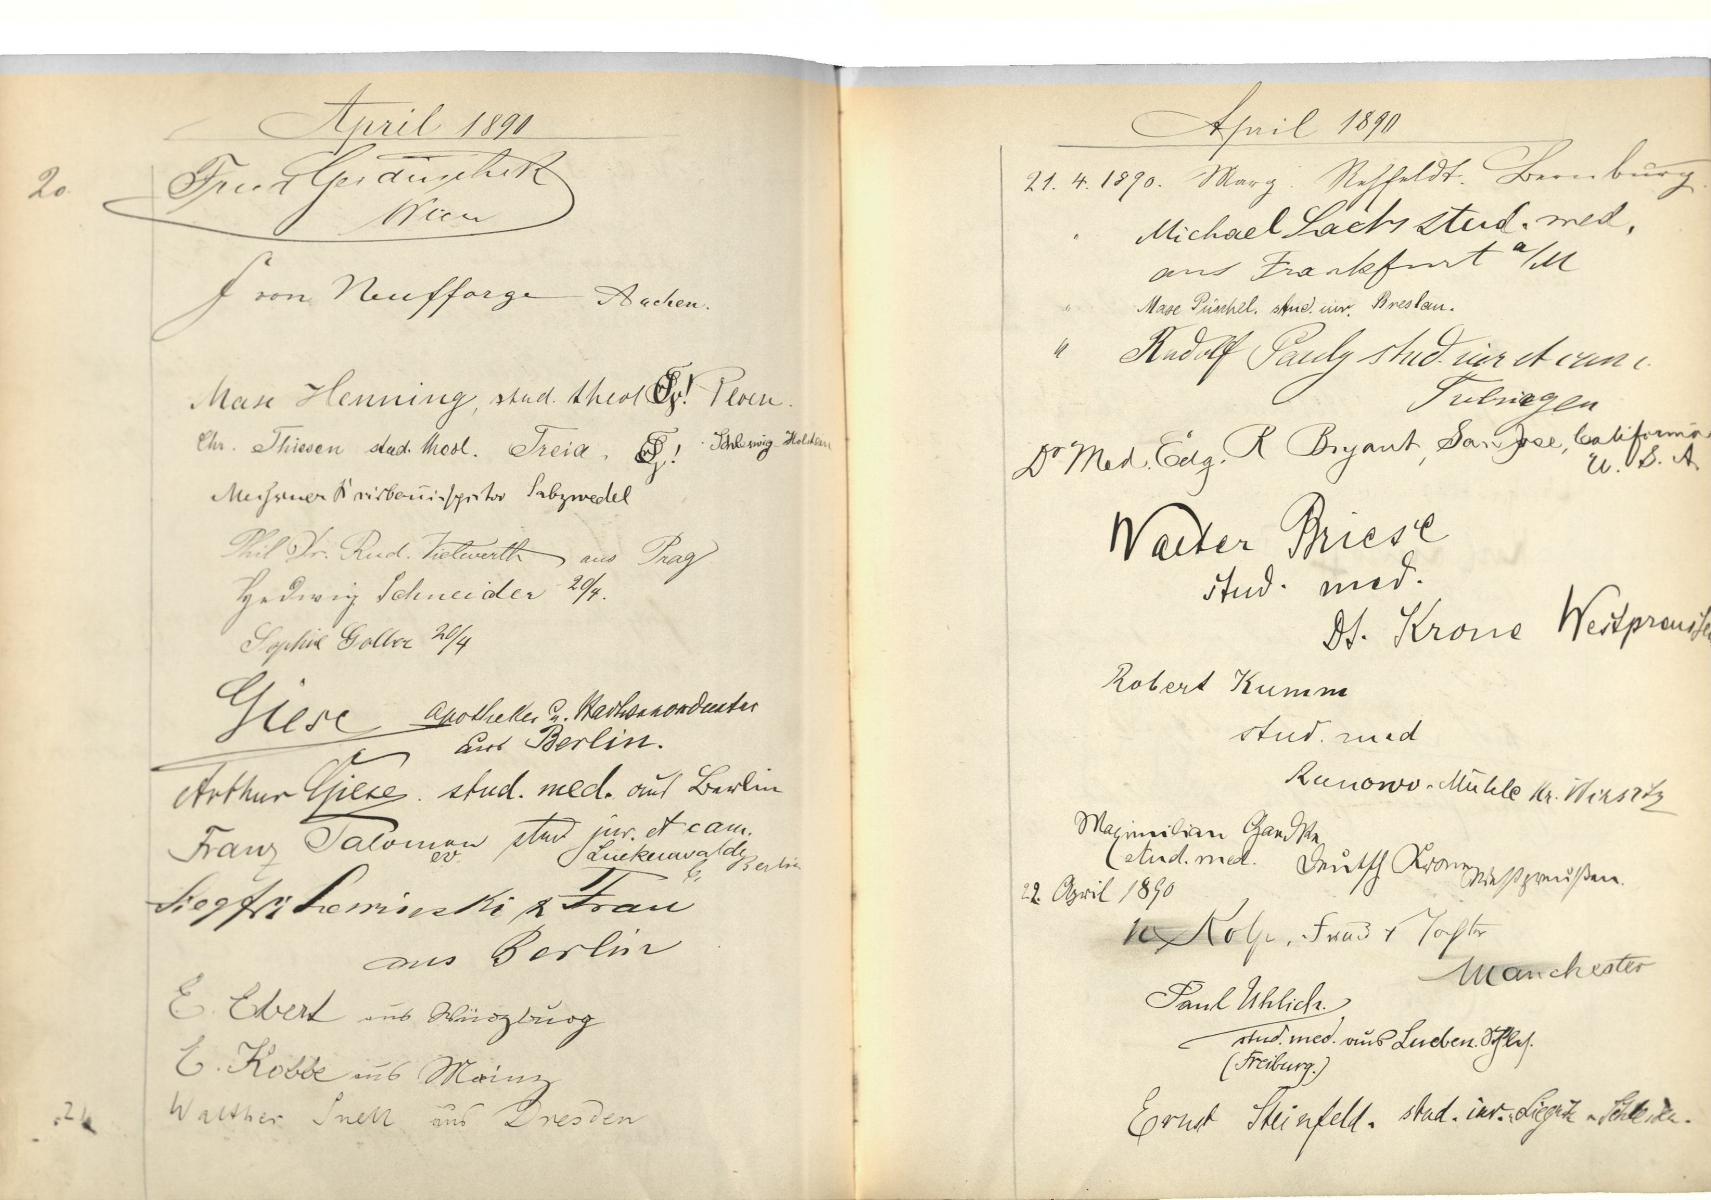 April 1890
20.
Wien
von Neufforge Aachen.
Max Henning, stud. theol
Chr. Thiesen stud. theol. Treia, Schleswig Holstein
Salzwedel
Phil Dr. Rud. aus Prag
Hedwig Schneider 20/4.
Sophie 20/4
Giese Apotheker u.
aus Berlin.
Arthur Giese. stud. med. aus Berlin
Franz Salomon stud jur. et cam.
Luckenwalde
Berlin
& Frau
aus Berlin
E. Ebert aus Würzburg
E. Kobbe aus Mainz
Walther Snell aus Dresden
April 1890
21. 4. 1890. Marg. Rehfeldt. Bernburg.
Michael Sachs stud. med.
aus Frankfurt a/M
" Max Püschel. stud. iur. Breslau.
" Rudolf Pauly stud. iur et cam.
Tübingen
Dr Med. Edg. R Bryant, San Jose, California
U. S. A.
Walter Briese
stud. med.
Dt. Krone Westpreussen
Robert Kumm
stud. med
Runowo-Mühle Kr. Wirsitz
Maximilian
stud. med. Deutsch Krone Westpreußen.
22. April 1890
Frau & Tochter
Manchester
Paul Uhlich.
stud. med. aus Lueben. Schles.
(Freiburg.)
Ernst Steinfeld. stud. iur. Liegnitz